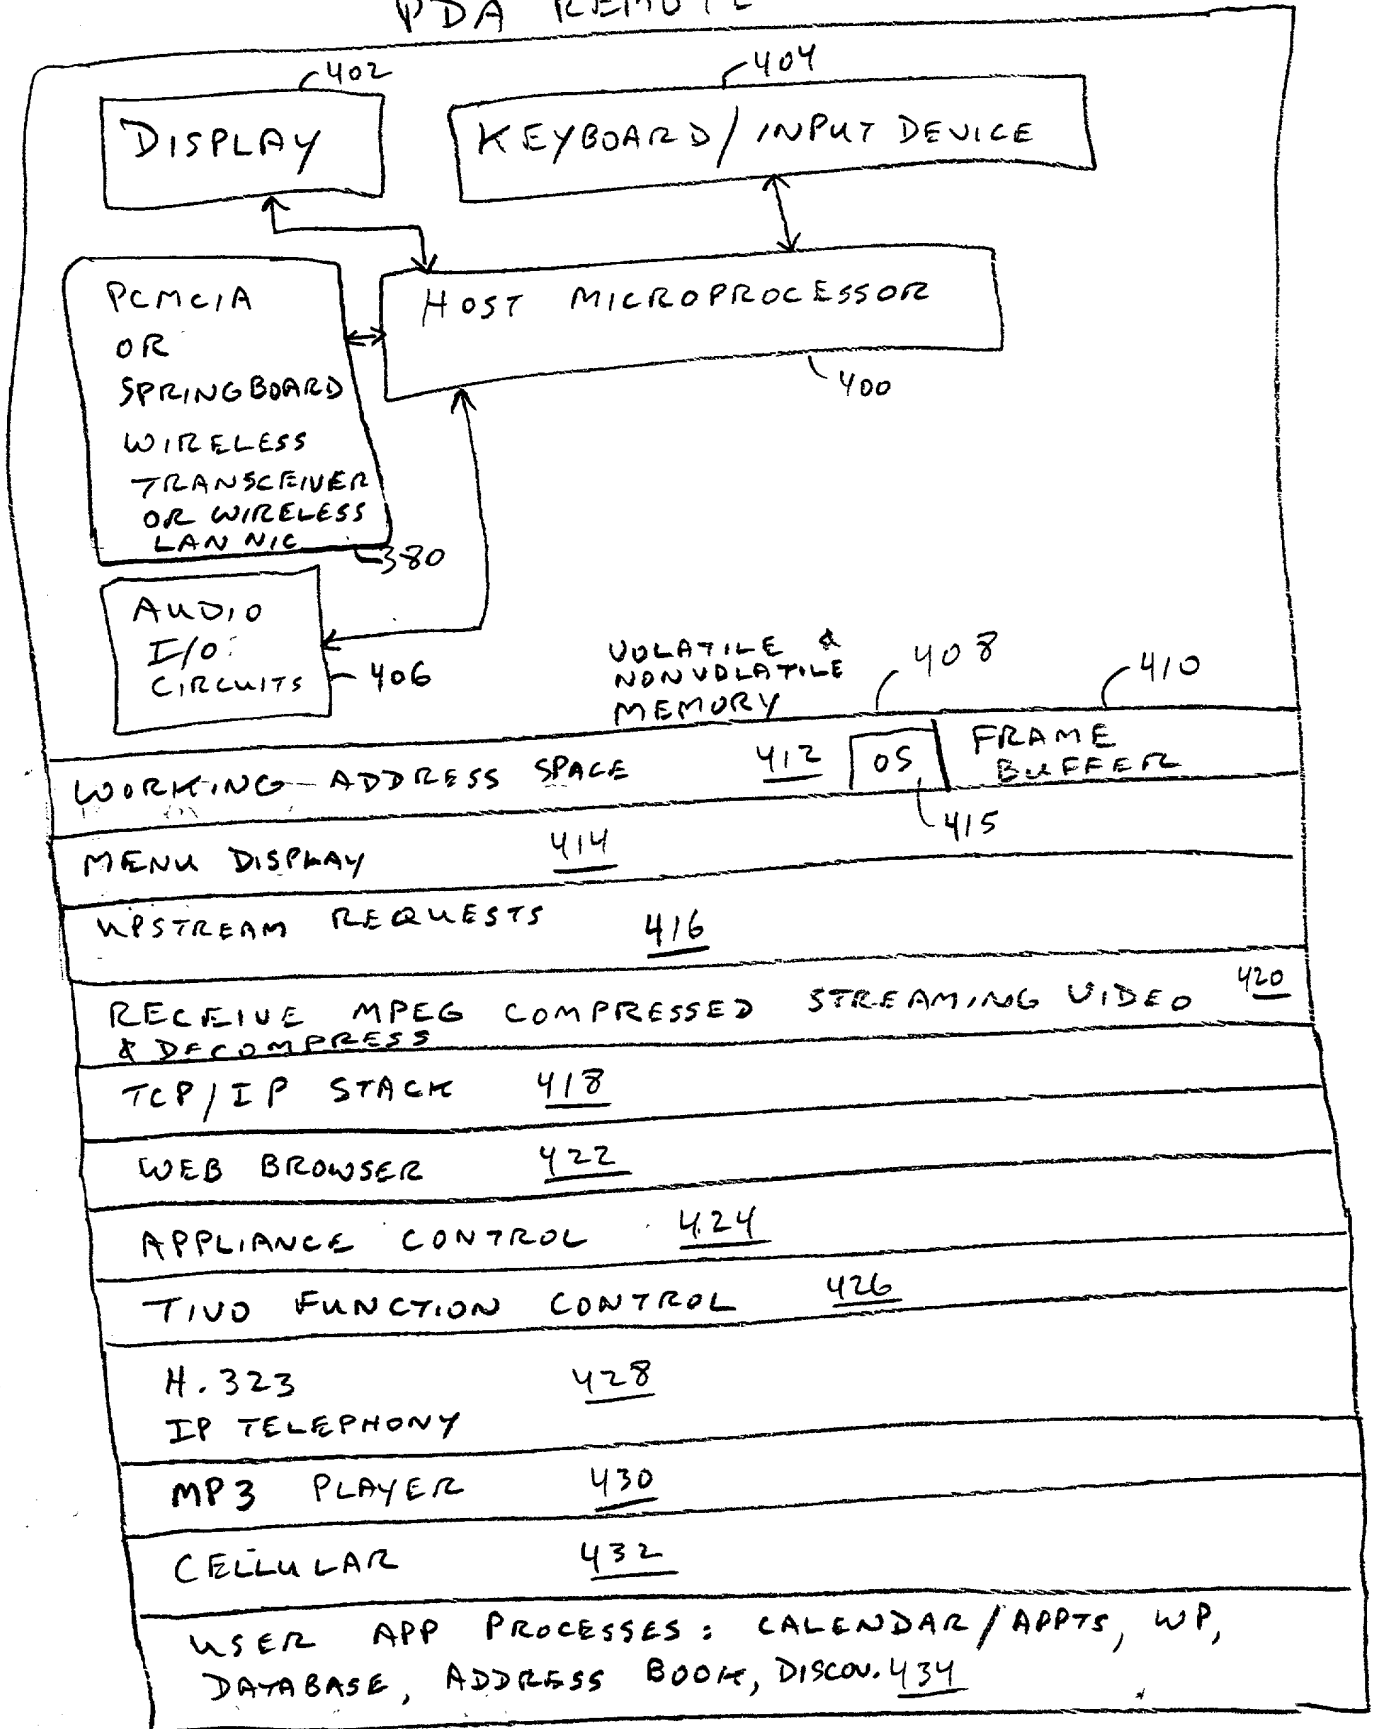 PDA REMOTE
402
404
DISPLAY
KEYBOARD/INPUT DEVICE
PCMCIA
OR
SPRINGBOARD
WIRELESS
TRANSCEIVER
OR WIRELESS
LAN NIC
380
HOST MICROPROCESSOR
400
AUDIO
I/O
CIRCUITS
406
VOLATILE &
NONVOLATILE
MEMORY
408
410
WORKING ADDRESS SPACE 412 OS FRAME
BUFFER
415
MENU DISPLAY 414
UPSTREAM REQUESTS 416
RECEIVE MPEG COMPRESSED STREAMING VIDEO 420
& DECOMPRESS
TCP/IP STACK 418
WEB BROWSER 422
APPLIANCE CONTROL 424
TIVO FUNCTION CONTROL 426
H.323 428
IP TELEPHONY
MP3 PLAYER 430
CELLULAR 432
USER APP PROCESSES: CALENDAR/APPTS, WP,
DATABASE, ADDRESS BOOK, DISCOV. 434